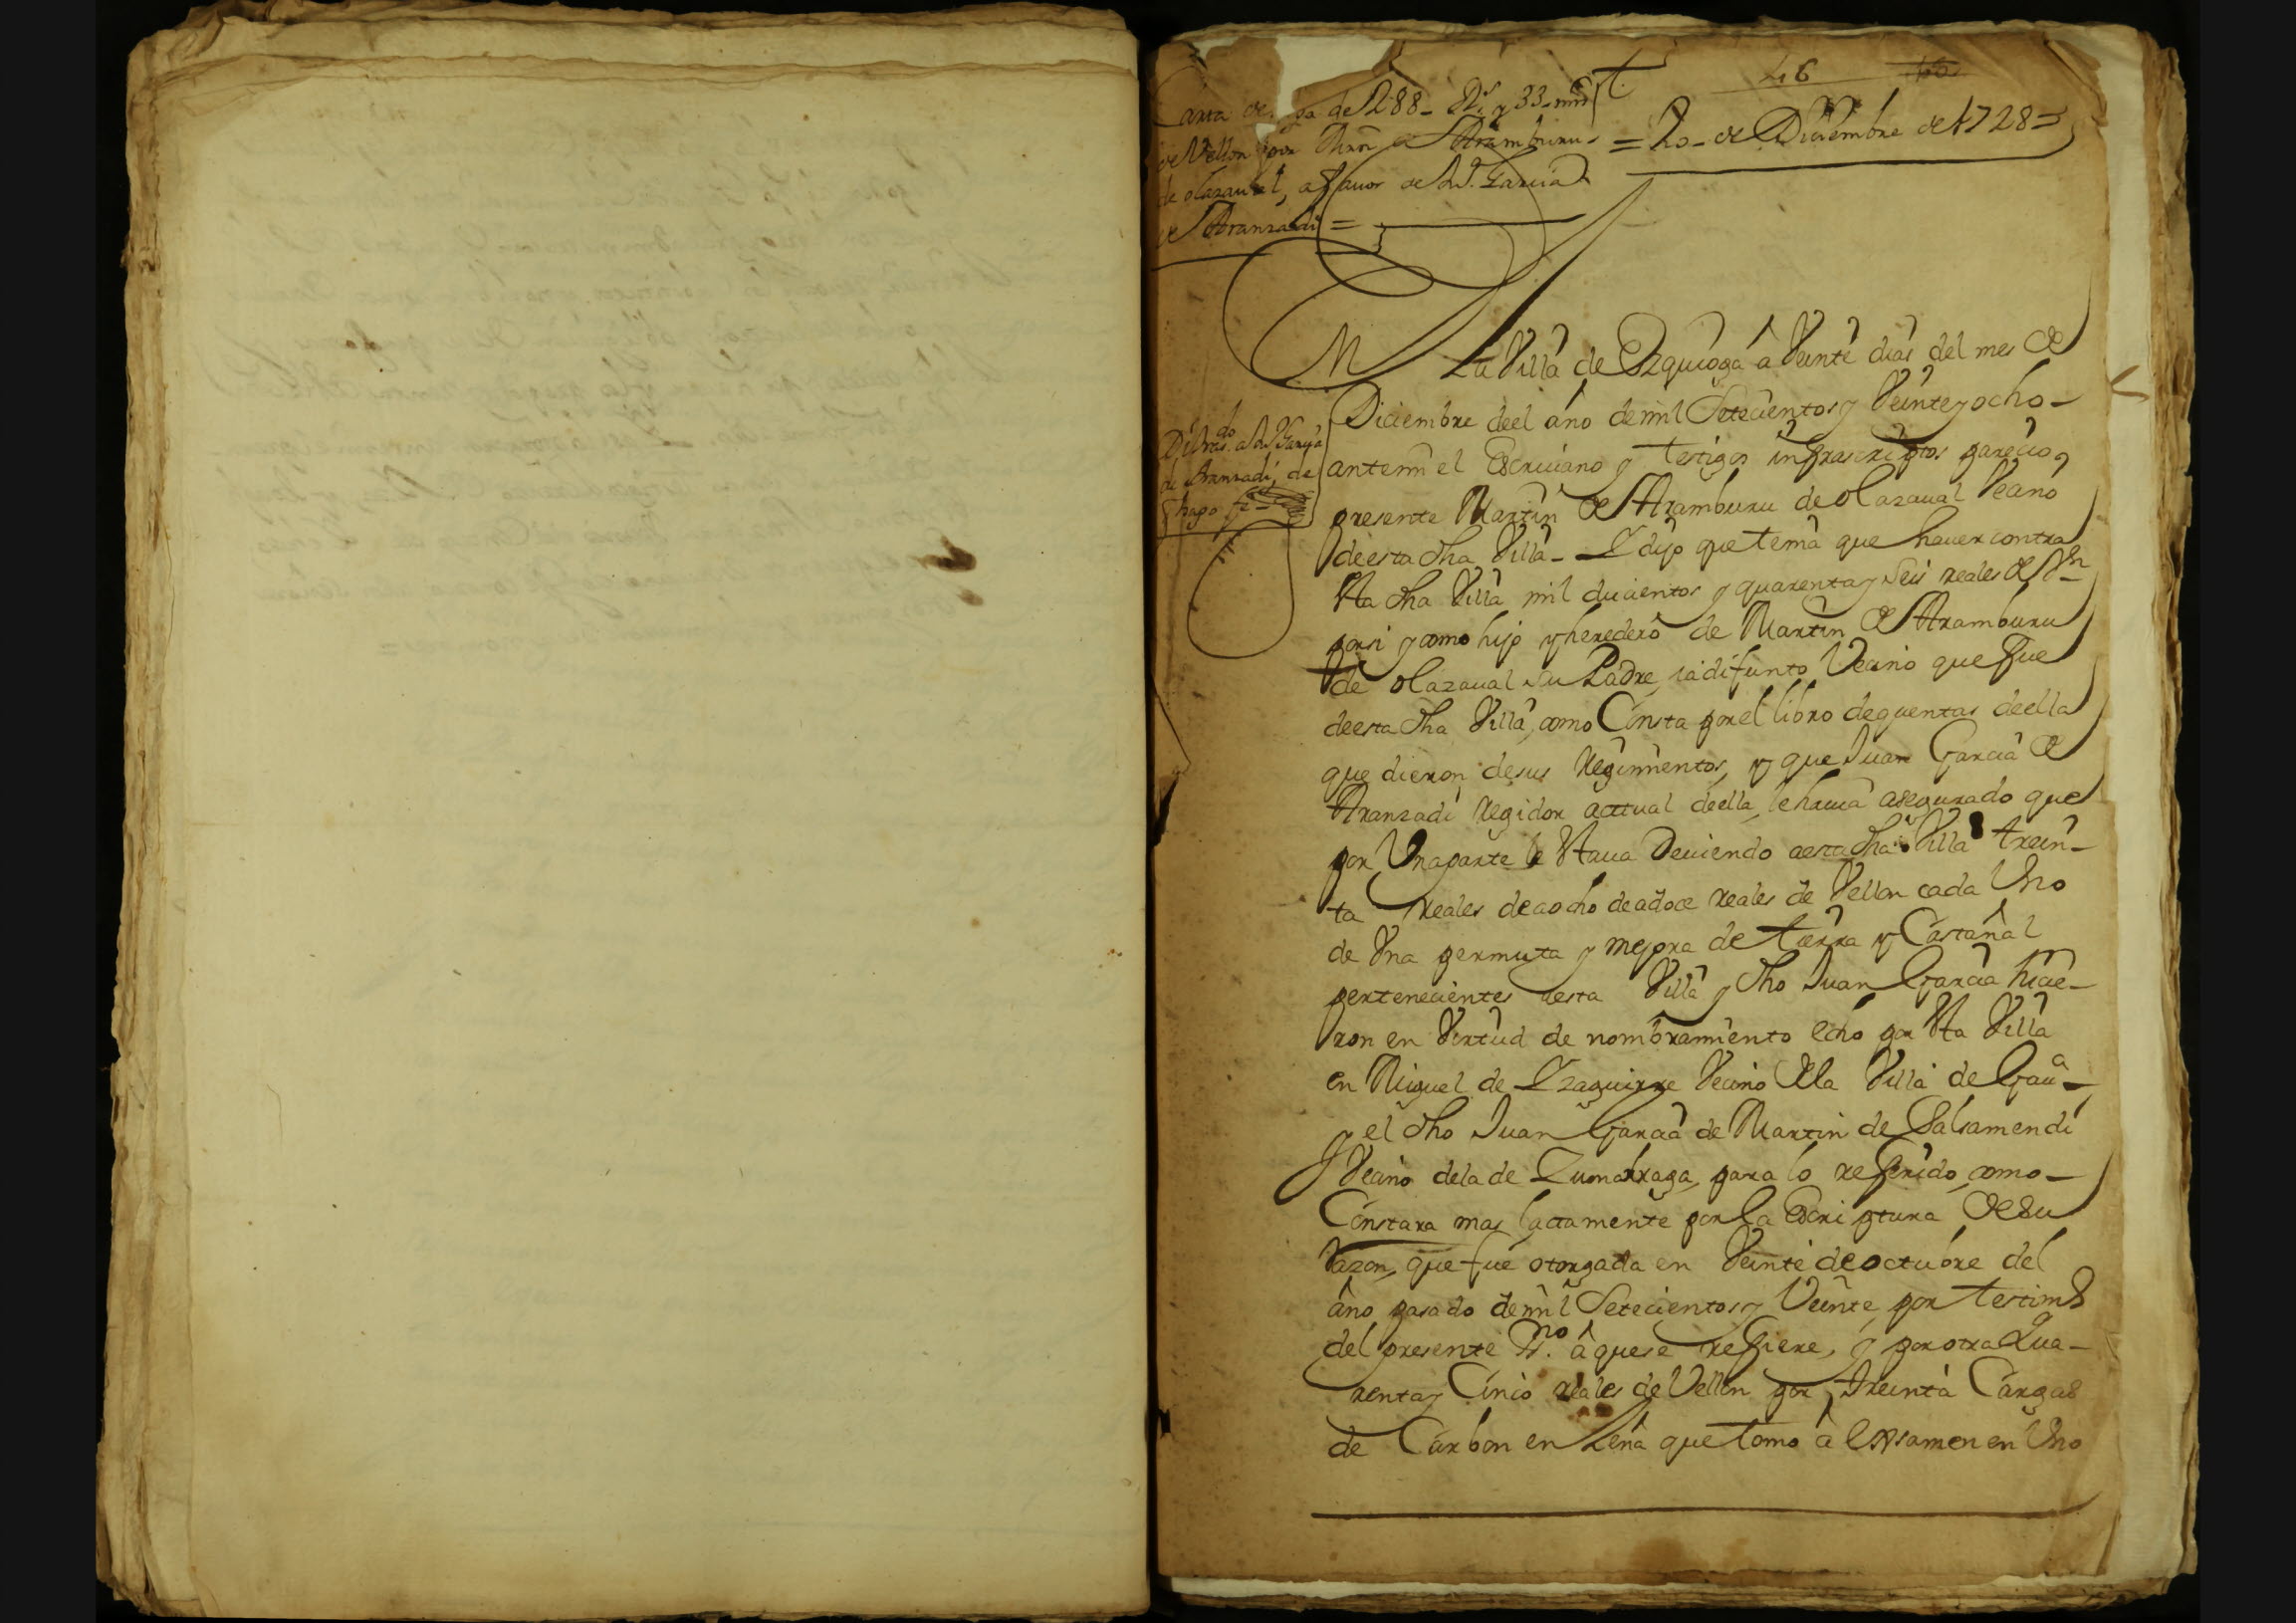 46
Carta de pa de 1288 Rs y 33 mrs
de Vellon por Mrn de Aramburu
de olazaual, a fauor de Jn. Garcia
de Aranzadi =
= 20 de Diciembre de 1728 =
En La Villa de Ezquioga â Veinte dias del mes de
Diciembre deel año de mil Setecientos y Veinte y ocho
antemi el Escriuano y testigos infrascriptos parecio
presente Martin de Aramburu de olazaual Vecino
deesta dha Villa - Y dijo que tenia que hauer contra
sta dha Villa mil ducientos y quarenta y seis reales de Vn
por si y como hijo y heredero de Martin de Aramburu
de olazaual su Padre, ia difunto Vecino que fue
deesta dha Villa, como Consta por el libro de quentas deella
que dieron desus Regimientos, y que Juan Garcia de
Aranzadi regidor actual deella, le hauia asegurado que
por Una parte le staua Deuiendo aesta dha Villa trein-
ta reales de aocho de adoce reales de Vellon cada Uno
de Una permuta y mejora de tierra y Castañal
pertenecientes aesta Villa y dho Juan Garcia hicie-
ron en Virtud de nombramiento echo por sta Villa
en Miguel de Yzaguirre Vecino dela Villa de Gaua
y el dho Juan Garcia de Martin de Salsamendi
Vecino dela de Zumarraga, para lo referido, como
Constara mas lactamente por la Escriptura de su
razon, que fue otorgada en Veinte de octubre del
año pasado de mil Setecientos y Veinte, por testimo
del presente Ssno. â que se refiere, y por otra Qua-
renta y Cinco reales de Vellon por treinta Cargas
de Carbon en Leña que tomo â Exsamen en Uno
Di tras.do a Jn Garcia
de Aranzadi, de
q hago fe =